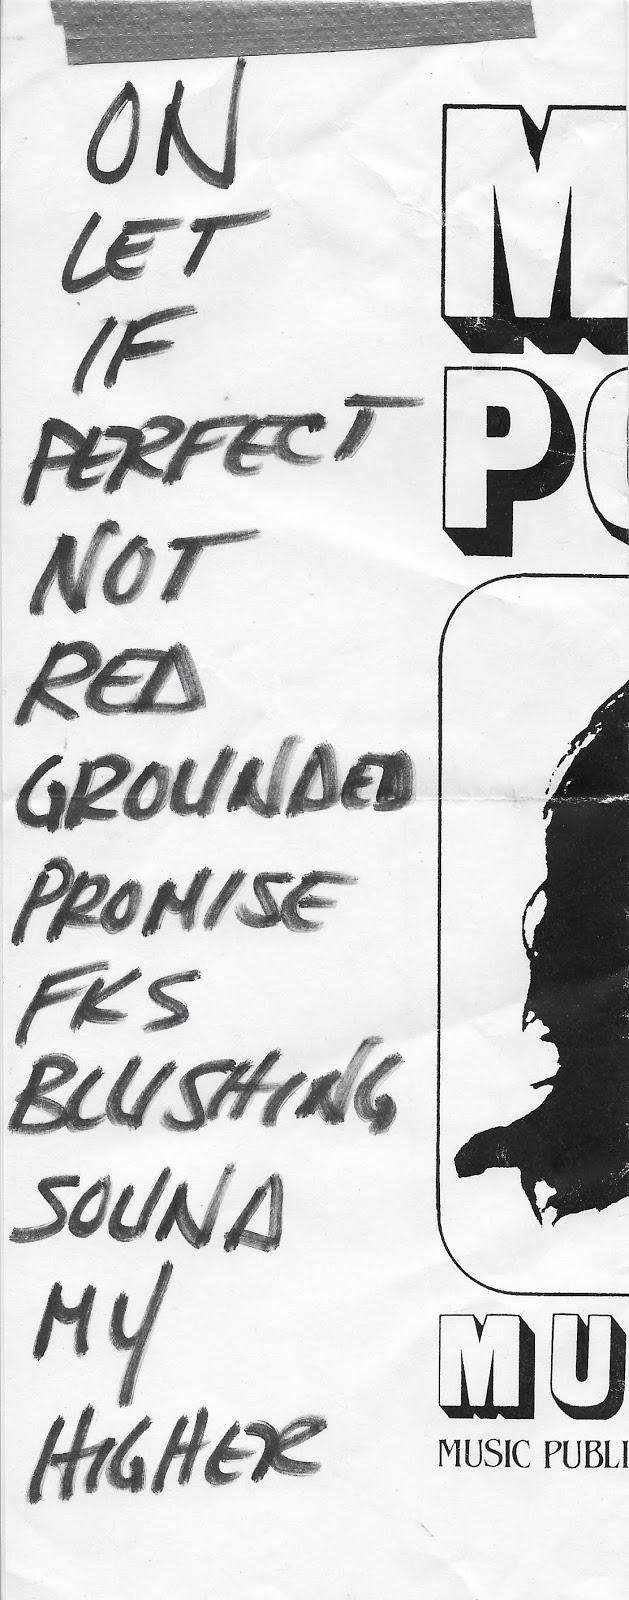 ON
LET
IF
PERFECT
NOT
RED
GROUNDED
PROMISE
FKS
BLUSHING
SOUND
MY
HIGHER
M
PO
MU
MUSIC PUBLI